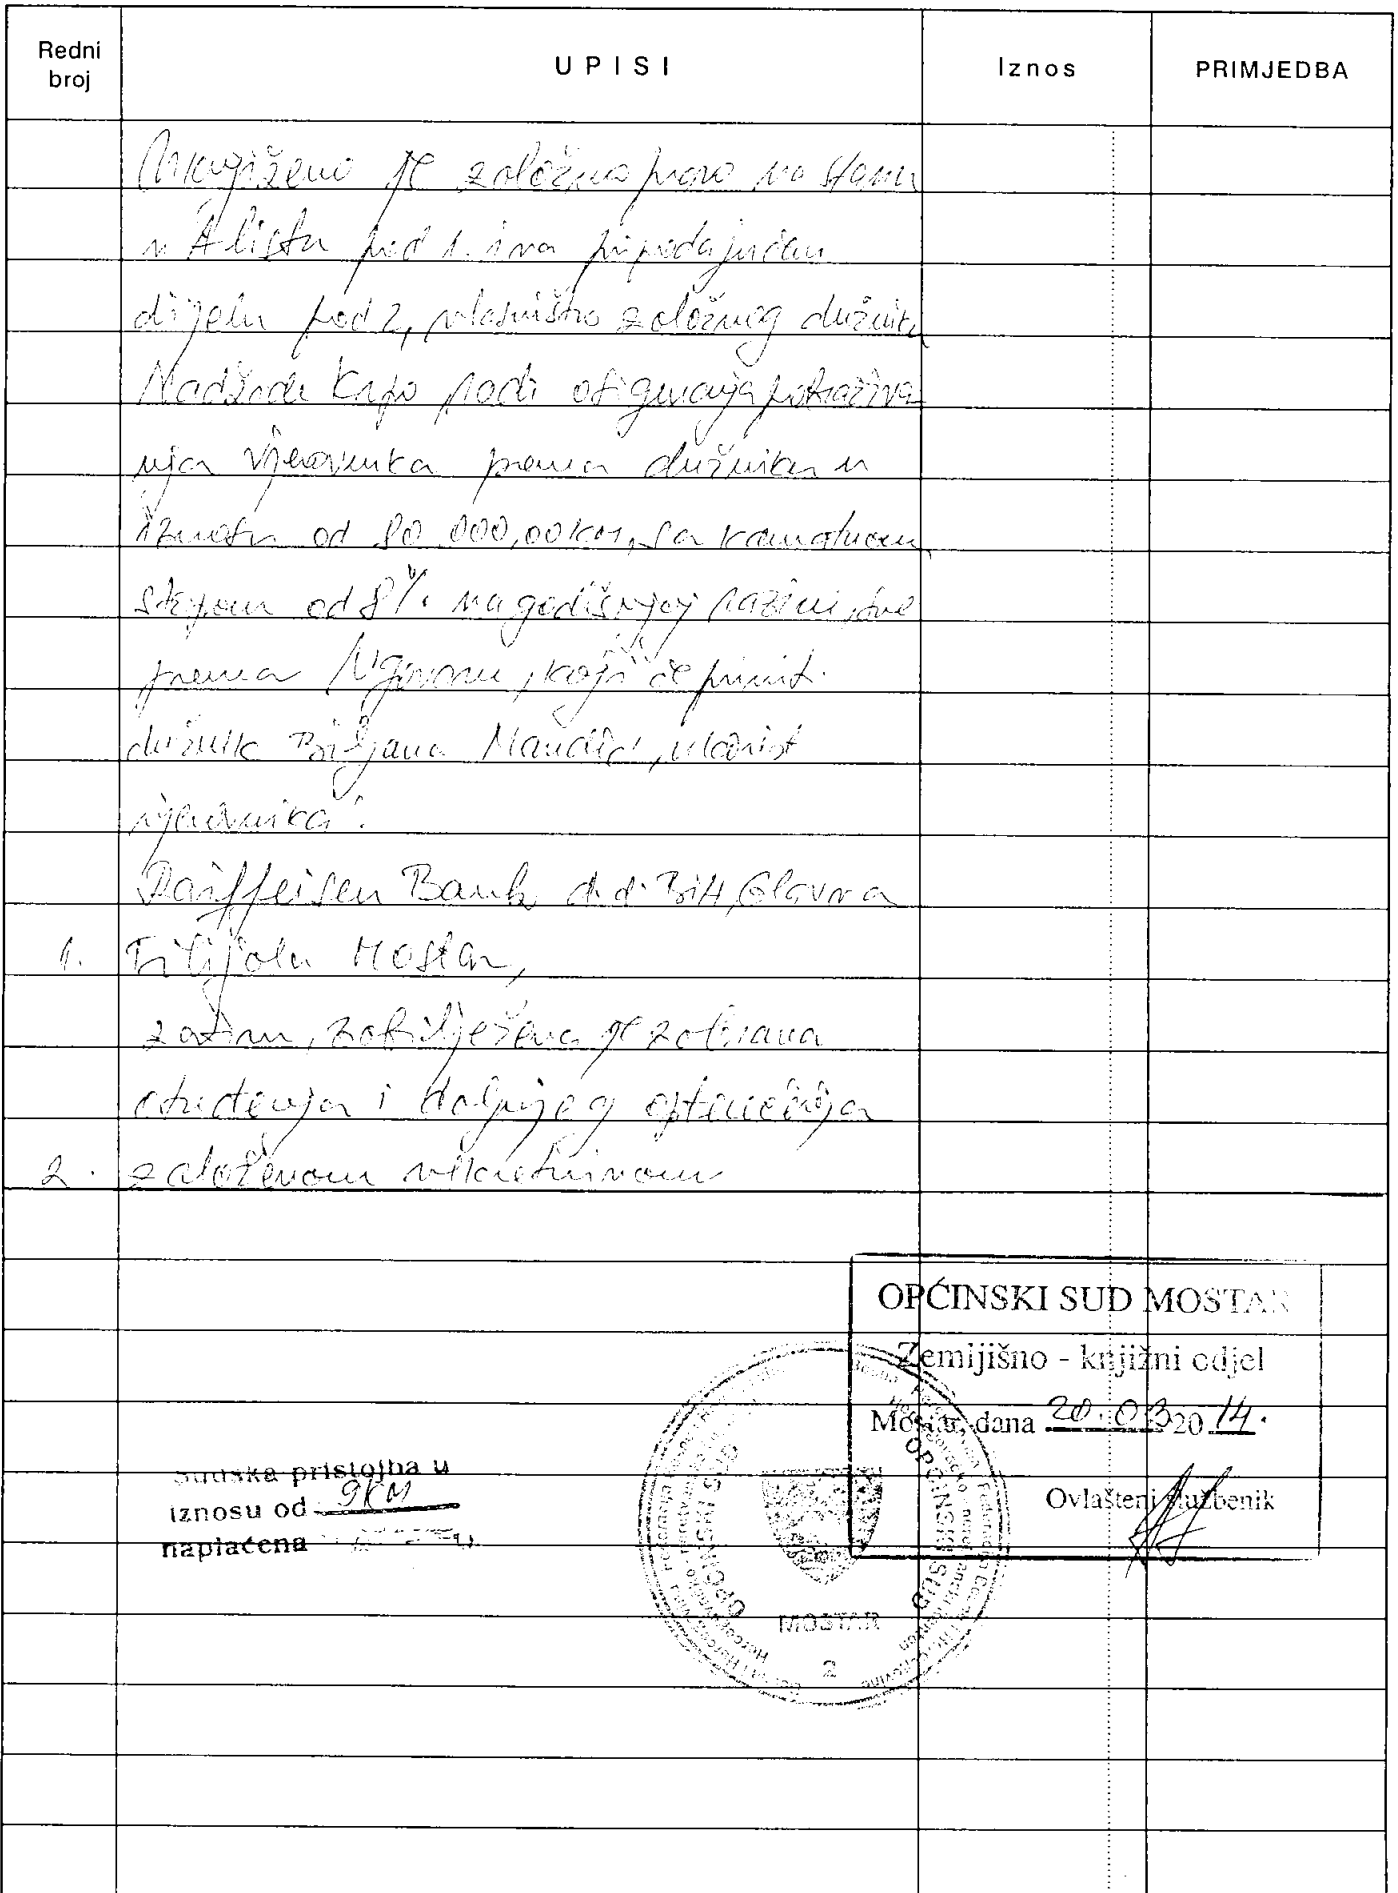 Redni broj
UPISI
Iznos
PRIMJEDBA
Uknjiženo je založno pravo na stanu
u A listu pod 1. i na pripadajućem
dijelu pod 2, vlasništvo založnog dužnika
radi osiguranja potraživa
nja vjerovnika prema dužniku u
iznosu od 80 000,00 KM, sa kamatnom
stopom od 8% na godišnjoj razini, sve
prema Ugovoru, koji će primit
dužnik Biljana Mandić, u korist
vjerovnika:
Raiffeisen Bank d.d. BiH, Glavna
1. Filijala Mostar,
zatim, zabilježena je zabrana
otuđenja i daljnjeg opterećenja
2. založenom nekretninom
OPĆINSKI SUD MOSTAR
Zemijišno - knjižni odjel
Mostar, dana 20.03 20 14.
Ovlašteni službenik
Sudska pristojba u
iznosu od 9KM
naplaćena
OPĆINSKI SUD
OPĆINSKI SUD
MOSTAR
2